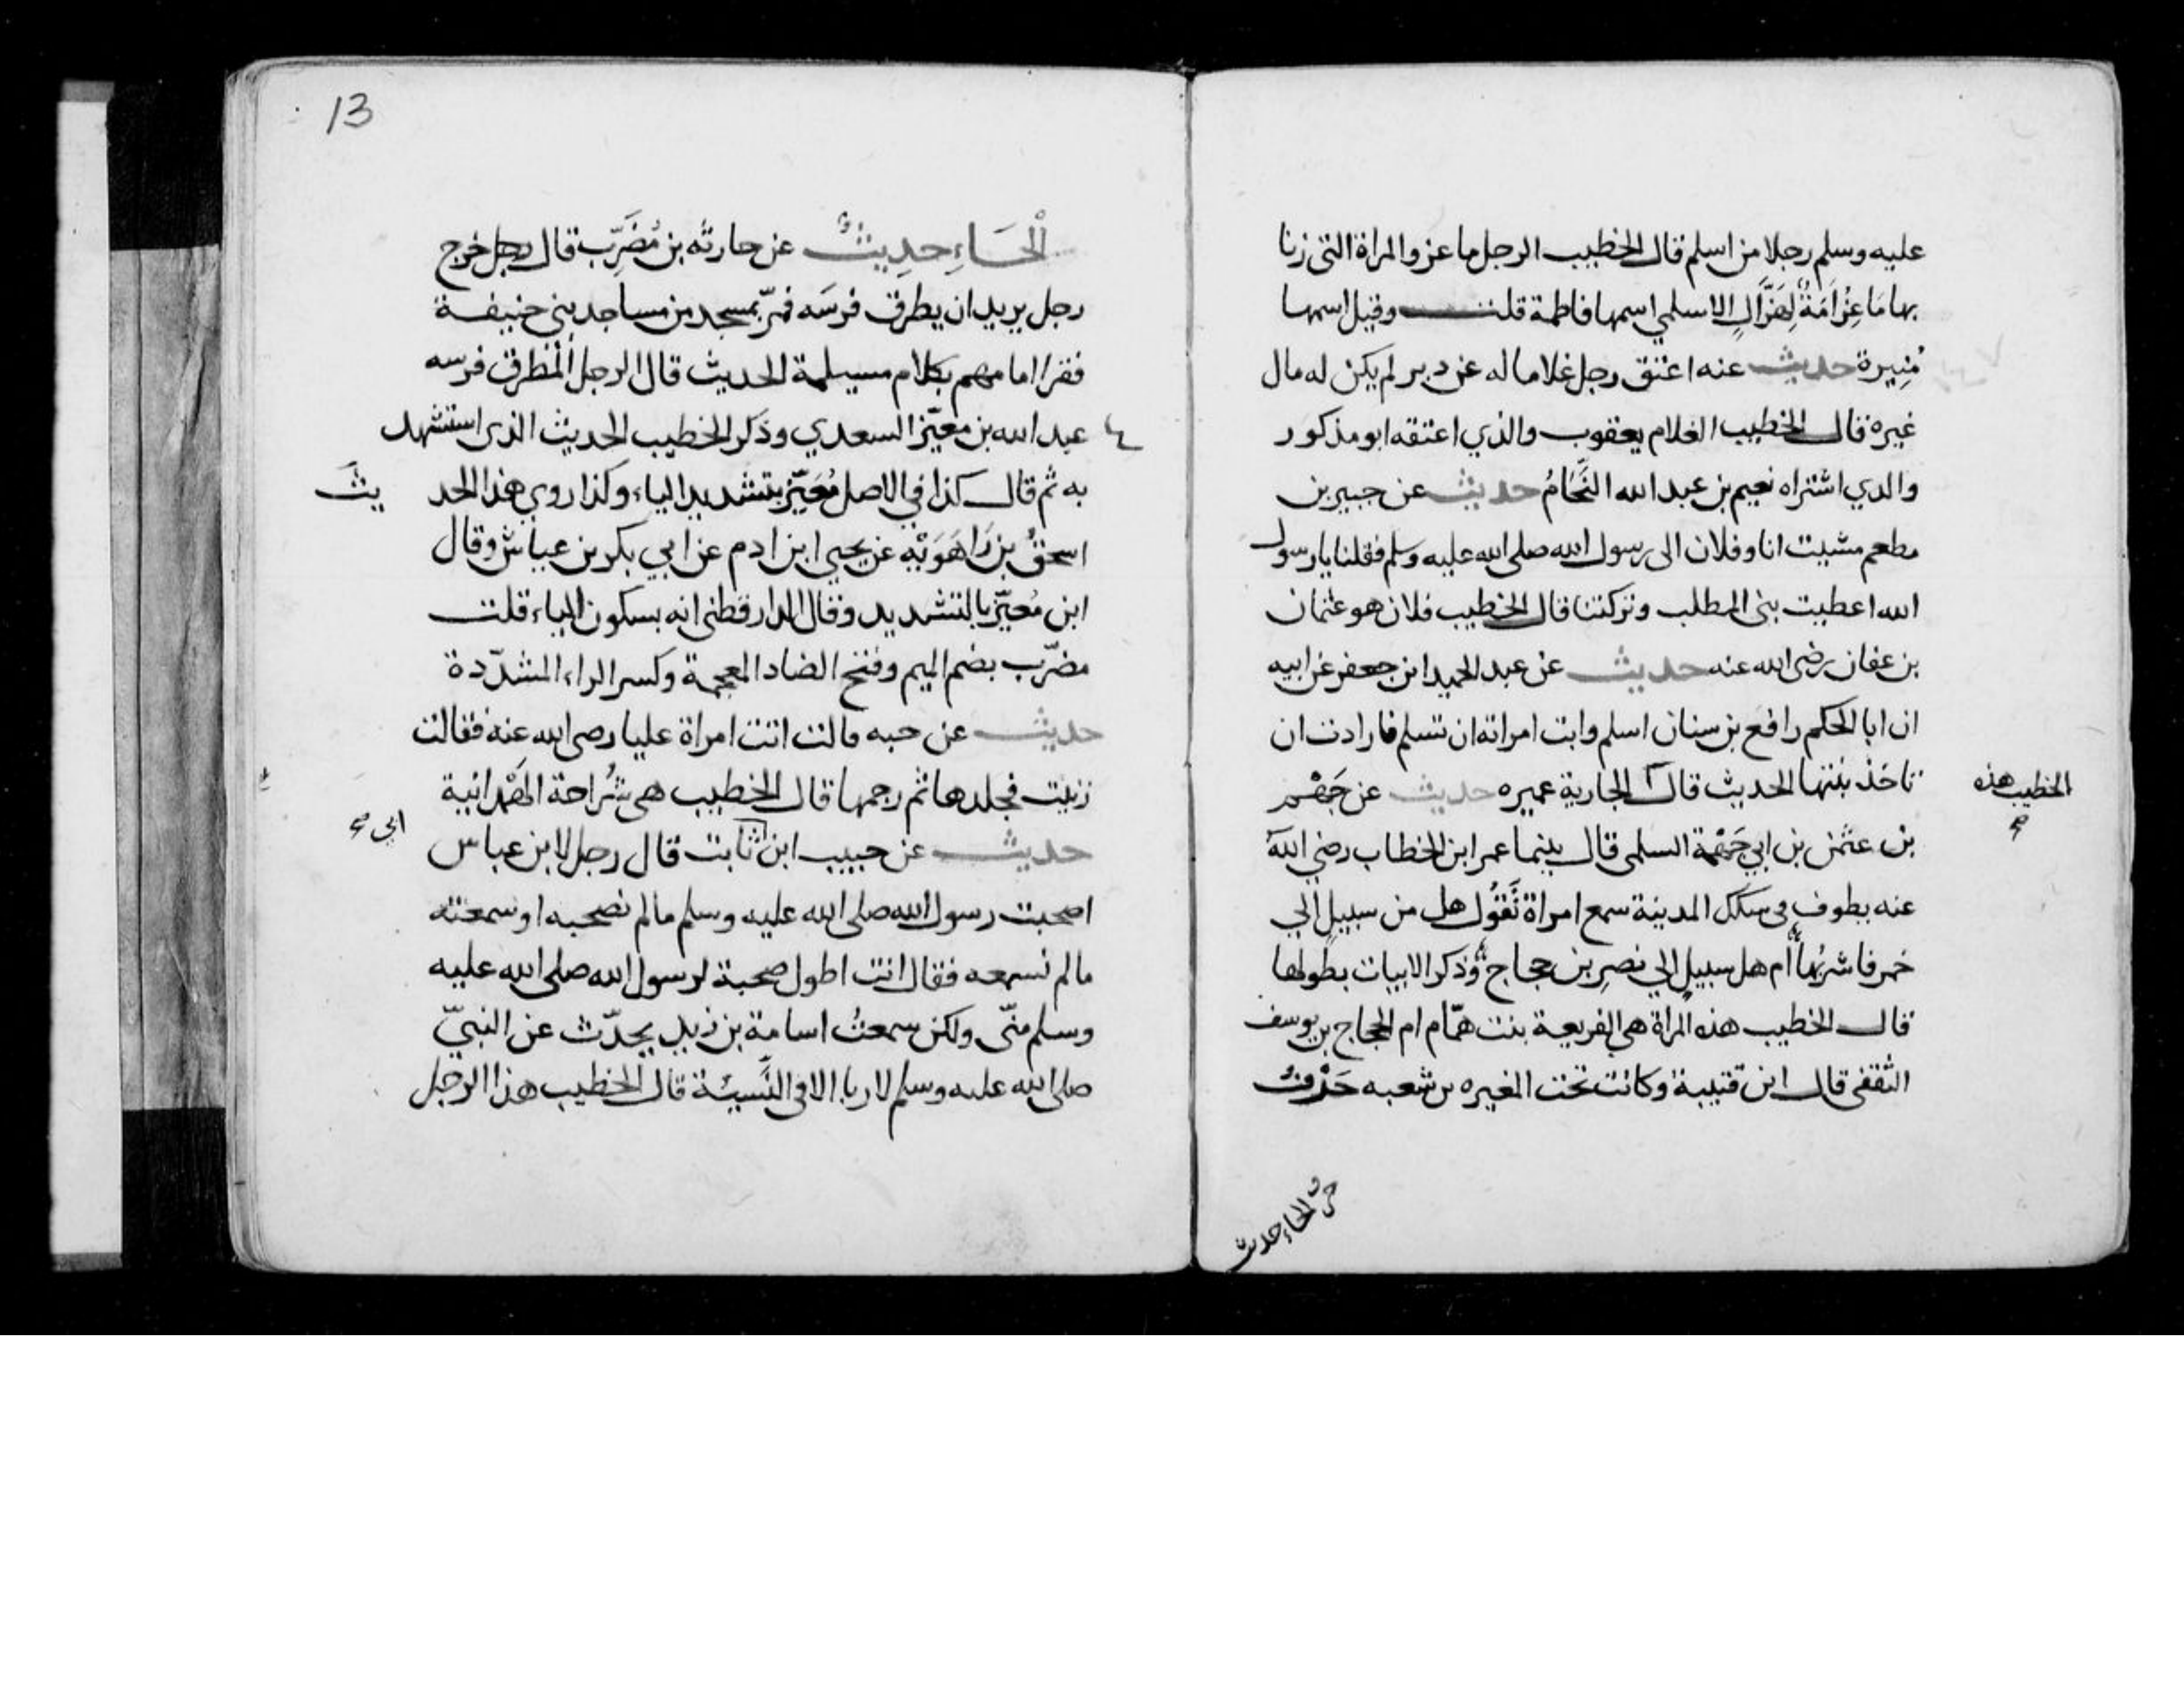 عليه وسلم رجلا من اسلم قال الخطيب الرجل ماعز والمراة التى زنا
بها مَاعِزُ اَمَةٌ لِهَزَّالٍ الاسلمي اسمها فاطمة قلت وقيل اسمها
مُنِيرة حديث عنه اعتق رجل غلاما له عن دبر لم يكن له مال
غيره قال الخطيب الغلام يعقوب والذي اعتقه ابو مذكور
والدي اشتراه نعيم بن عبد الله النَّحَّامُ حديث عن جبير بن
مطعم مشيت انا وفلان الى رسول الله صلى الله عليه وسلم فقلنا يا رسول
الله اعطيت بنى المطلب وتركتنا قال الخطيب فلان هو عثمان
بن عفان رضى الله عنه حديث عن عبد الحميد ابن جعفر عن ابيه
ان ابا الحكم رافع بن سنان اسلم وابت امراته ان تسلم فارادت ان
تاخذ بنتها الحديث قال الجارية عميره حديث عن جَهْم
الخطيب هذه صح
بن عثمن بن ابي جَهْمة السلمى قال بينما عمر ابن الخطاب رضي الله
عنه يطوف في سكك المدينة سمع امراة تَقُول هل من سبيلٍ الي
خمر فاشربُها ام هل سبيلٍ الي نصرِ بن حجاج وذكر الابيات بطولها
قال الخطيب هذه المراة هي الفريعة بنت همّام ام الحجاج بن يوسف
الثقفى قال ابن قتيبة وكانت تحت المغيره بن شعبه حَرْفُ
حرف الحاء حديث
13
الْحَاءِ حدِيثٌ عن حارثه بن مُضَرِّب قال رجل خرج
رجل يريد ان يطرق فرسَه فمرّ بمسجد من مساجد بني حنيفة
فقرا امامهم بكلام مسيلمة الحديث قال الرجل المُطرق فرسه
عبد الله بن معيّز السعدي وذكر الخطيب الحديث الذى استشهد
به ثم قال كذا في الاصل مُعَيّز بتشديد الياء وكذا روي هذا الحديث
اسحقُ بن رَاهَوَيْه عن يحيي ابن ادم عن ابي بكر بن عياش وقال
ابن مُعيّز بالتشديد وقال الدارقطنى انه بسكون الياء قلت
مضرّب بضم الميم وفتح الضاد المعجمة وكسر الراء المشدّدة
حديث عن حبه قالت اتت امراة عليا رضى الله عنه فقالت
زنيت فجلدها ثم رجمها قال الخطيب هى شُراحة الهَمْدانية
حديث عن حبيب ابن ثابت قال رجل لابن عباس
ابي صح
اصحبت رسول الله صلى الله عليه وسلم مالم نصحبه او سمعته
مالم نسمعه فقال انت اطول صحبة لرسول الله صلى الله عليه
وسلم منّى ولكن سمعتُ اسامة بن زيد يحدّث عن النبيّ
صلى الله عليه وسلم لا ربا الا فى النَّسيئة قال الخطيب هذا الرجل